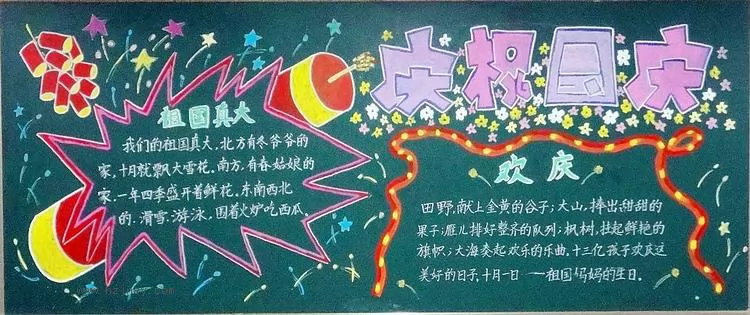 庆祝国庆
祖国真大
我们的祖国真大,北方有冬爷爷的
家,十月就飘大雪花。南方,有春姑娘的
家.一年四季盛开着鲜花。东南西北
的.滑雪.游泳,围着火炉吃西瓜。
欢庆
田野,献上金黄的谷子;大山,捧出甜甜的
果子;雁儿排好整齐的队列;枫树,挂起鲜艳的
旗帜;大海奏起欢乐的乐曲,十三亿孩子欢庆这
美好的日子,十月一日——祖国妈妈的生日。